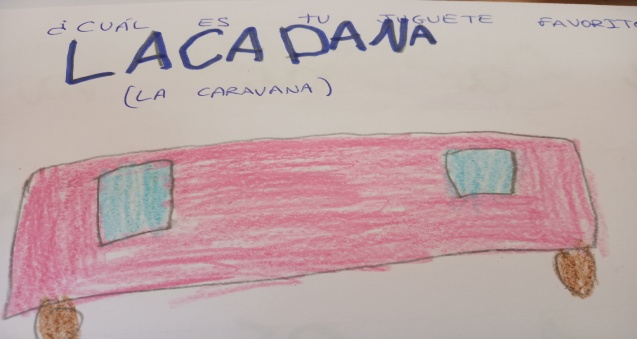 ¿CUÁL ES TU JUGUETE FAVORITO
LACADANA
(LA CARAVANA)